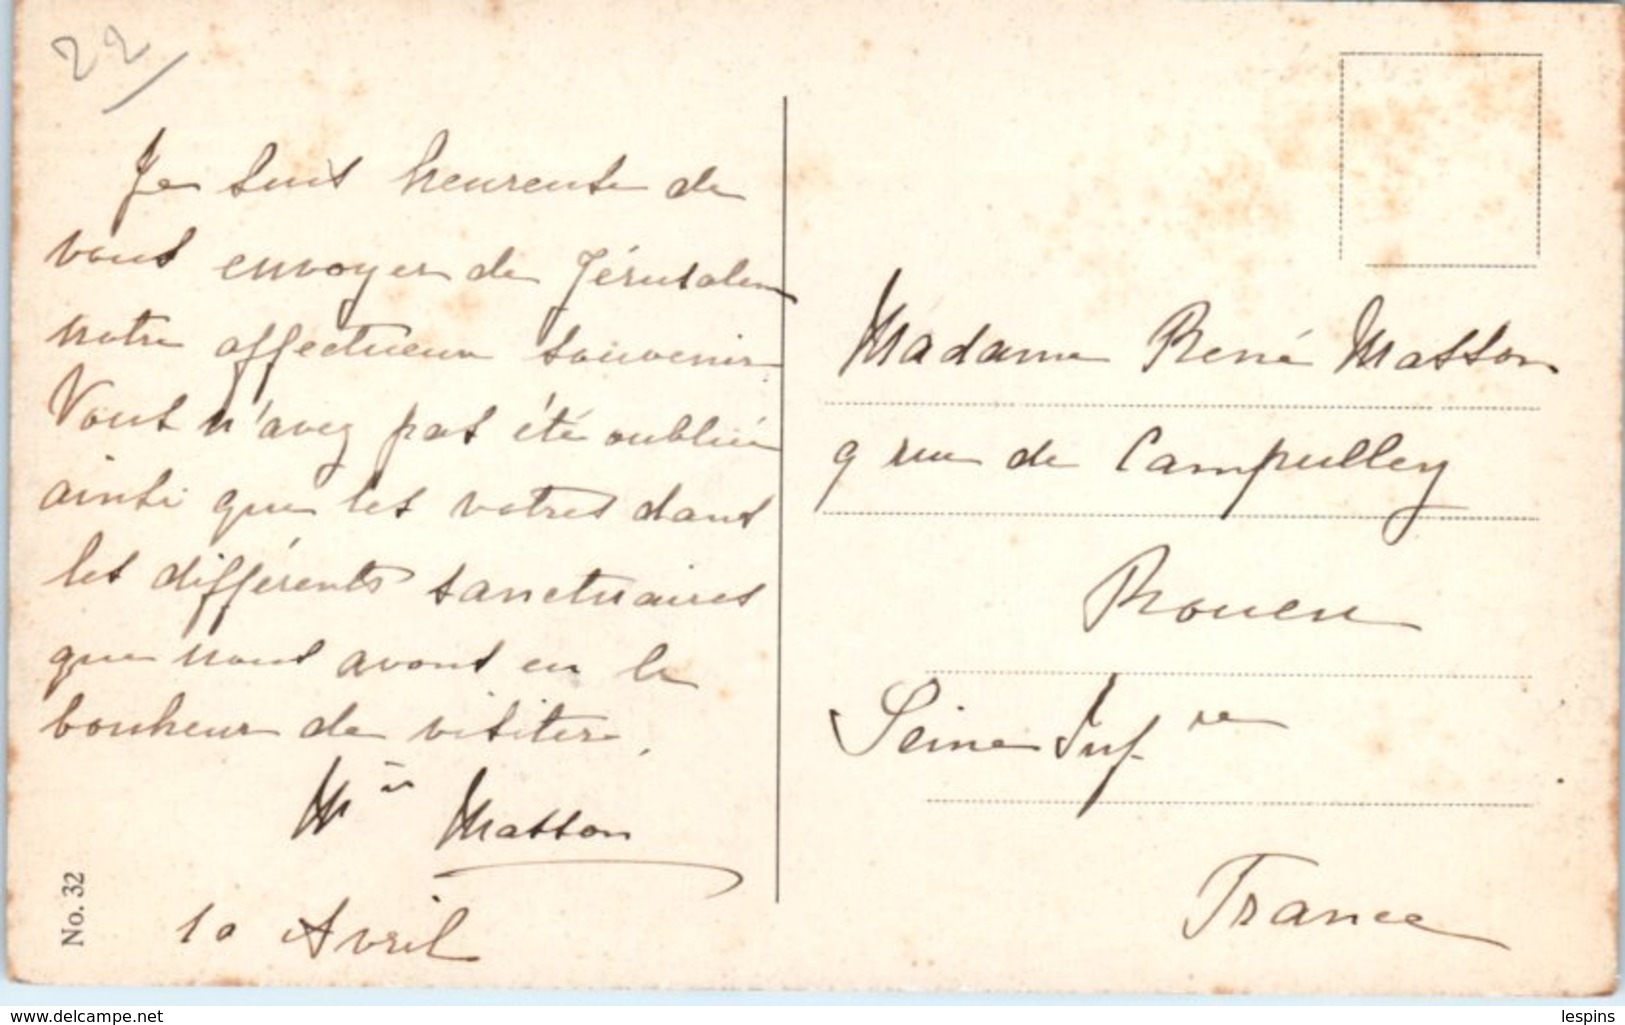 22
Je suis heureuse de
vous envoyer de Jérusalem
notre affectueux souvenir
Vous n'avez pas été oubliée
ainsi que les vôtres dans
les différents sanctuaires
que nous avons eu le
bonheur de visiter.
Masson
10 Avril
No. 32
Madame René Masson
9 rue de Campulley
Rouen
Seine Infre
France
www.delcampe.net
lespins